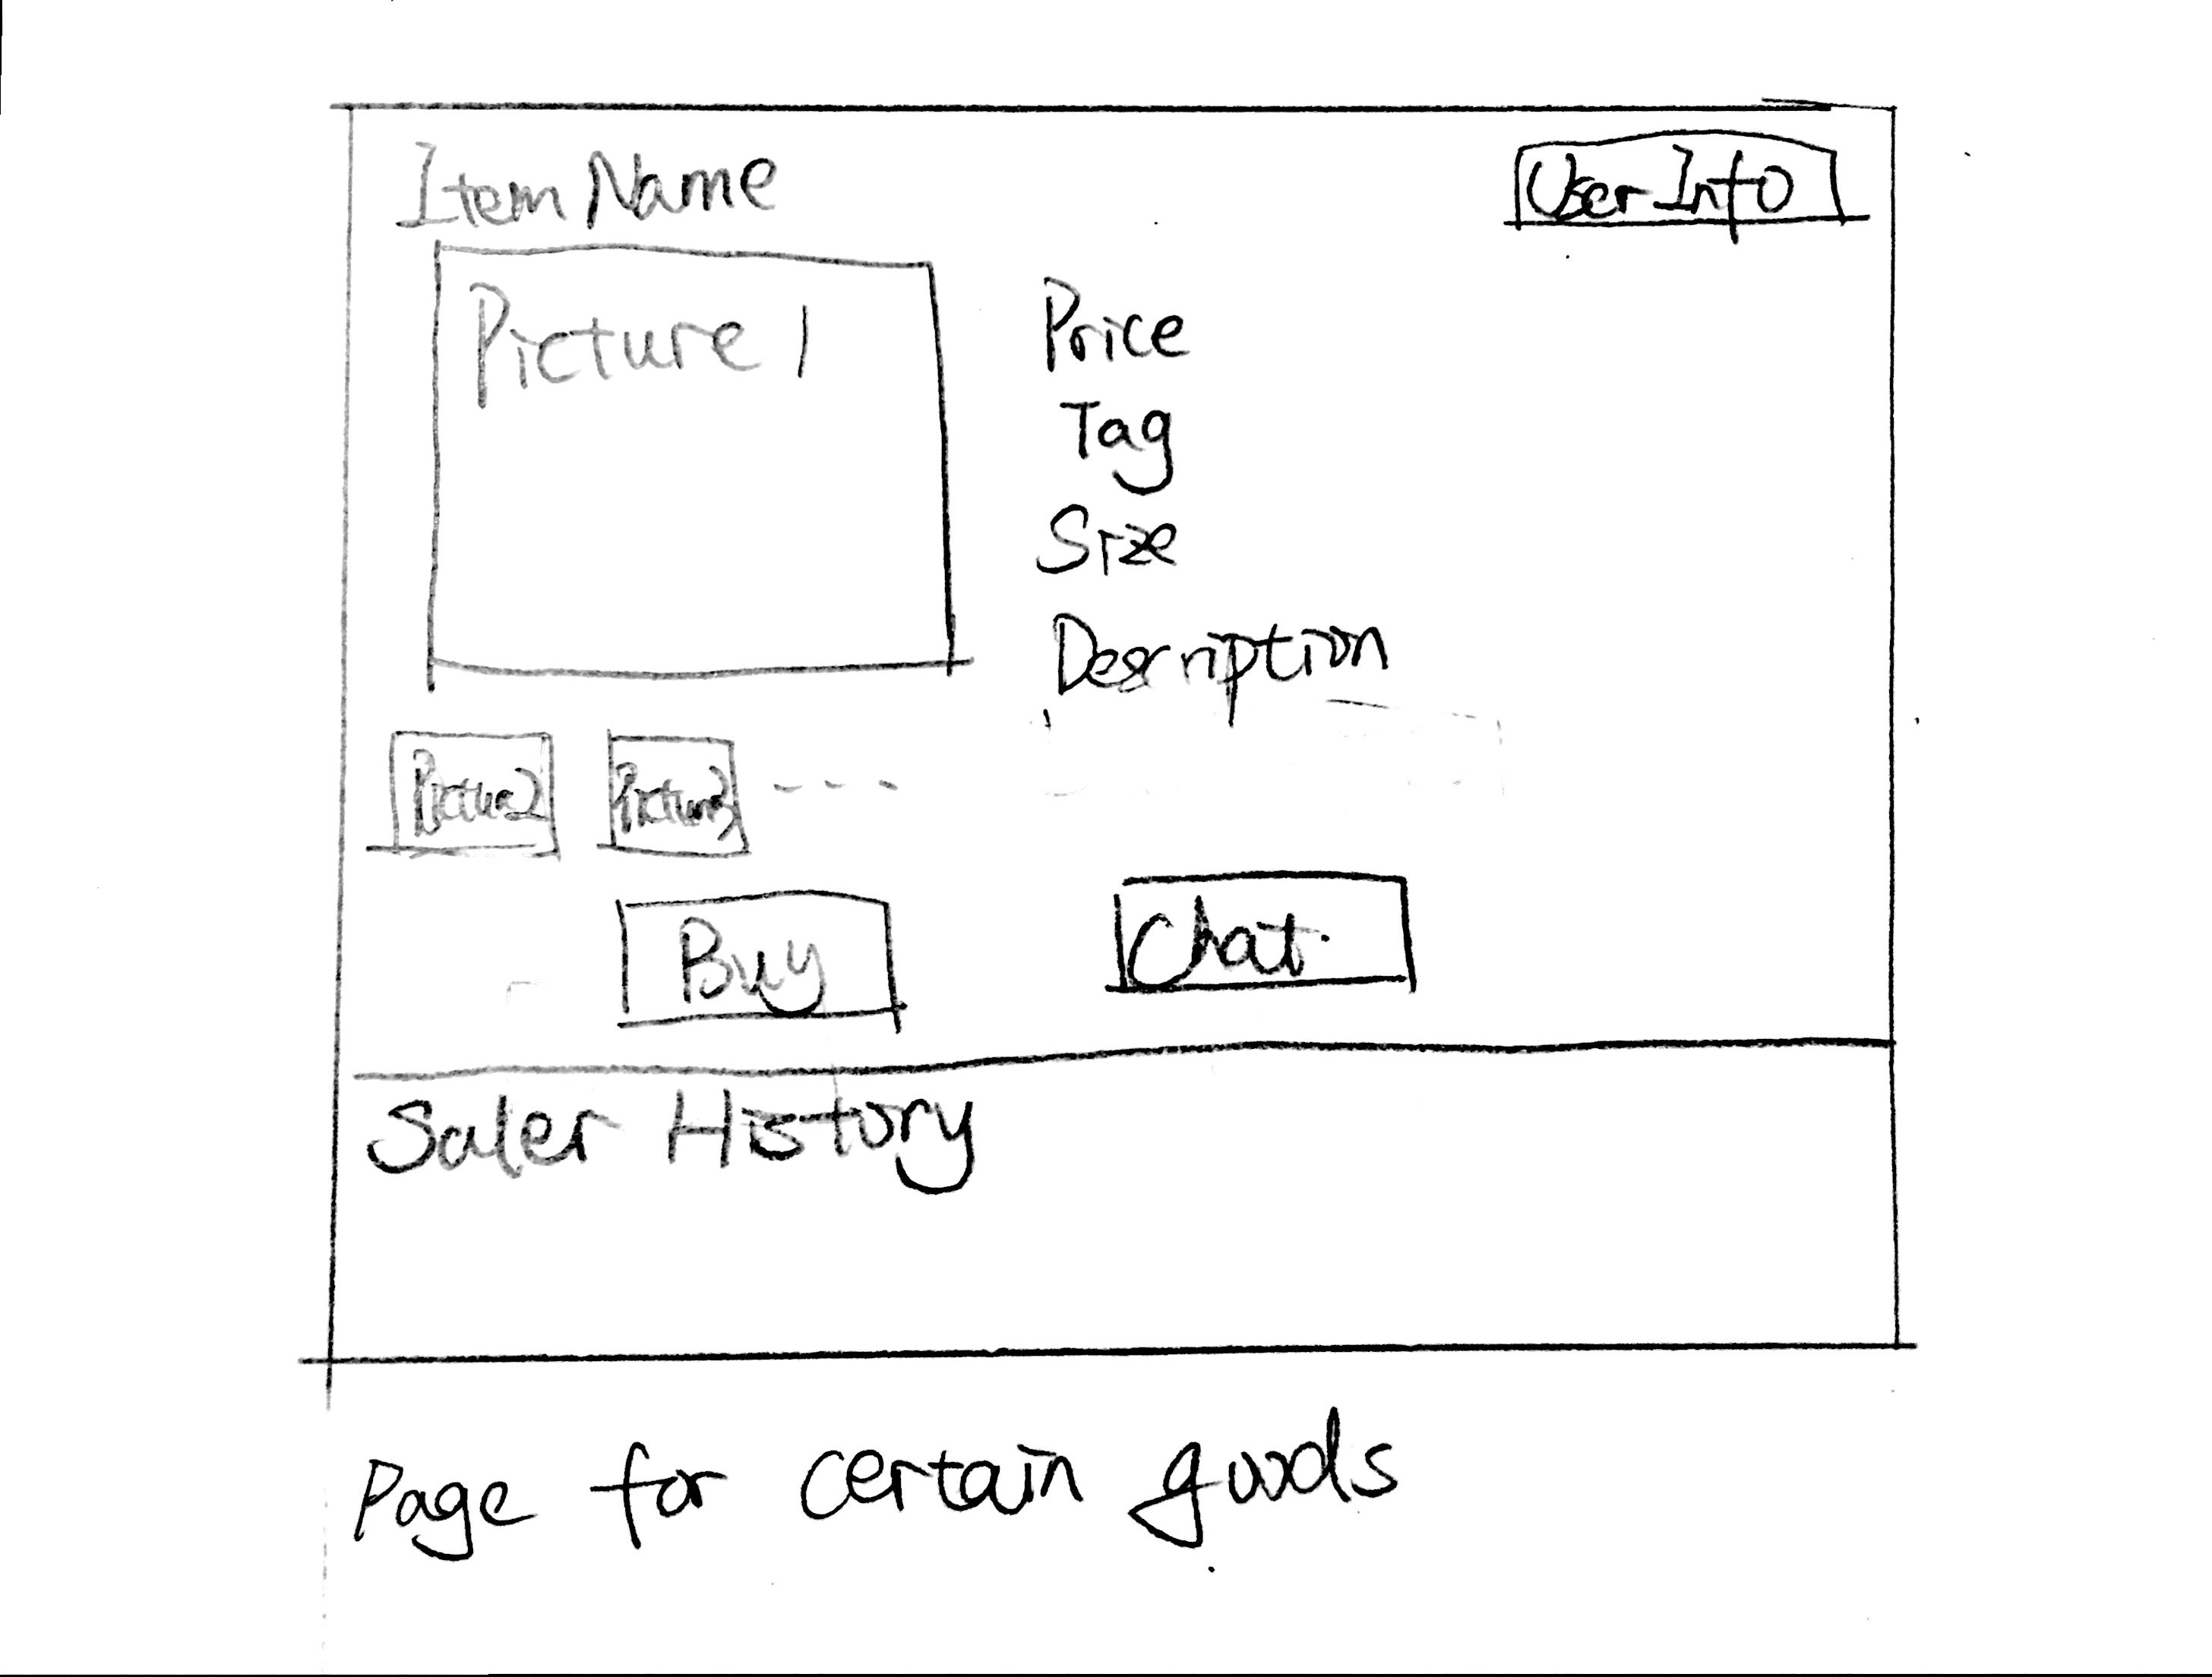 Item Name
User Info
Picture 1
Price
Tag
Size
Description
Pictur2
Picture3
- - - -
Buy
Chat
Saler History
Page for certain goods